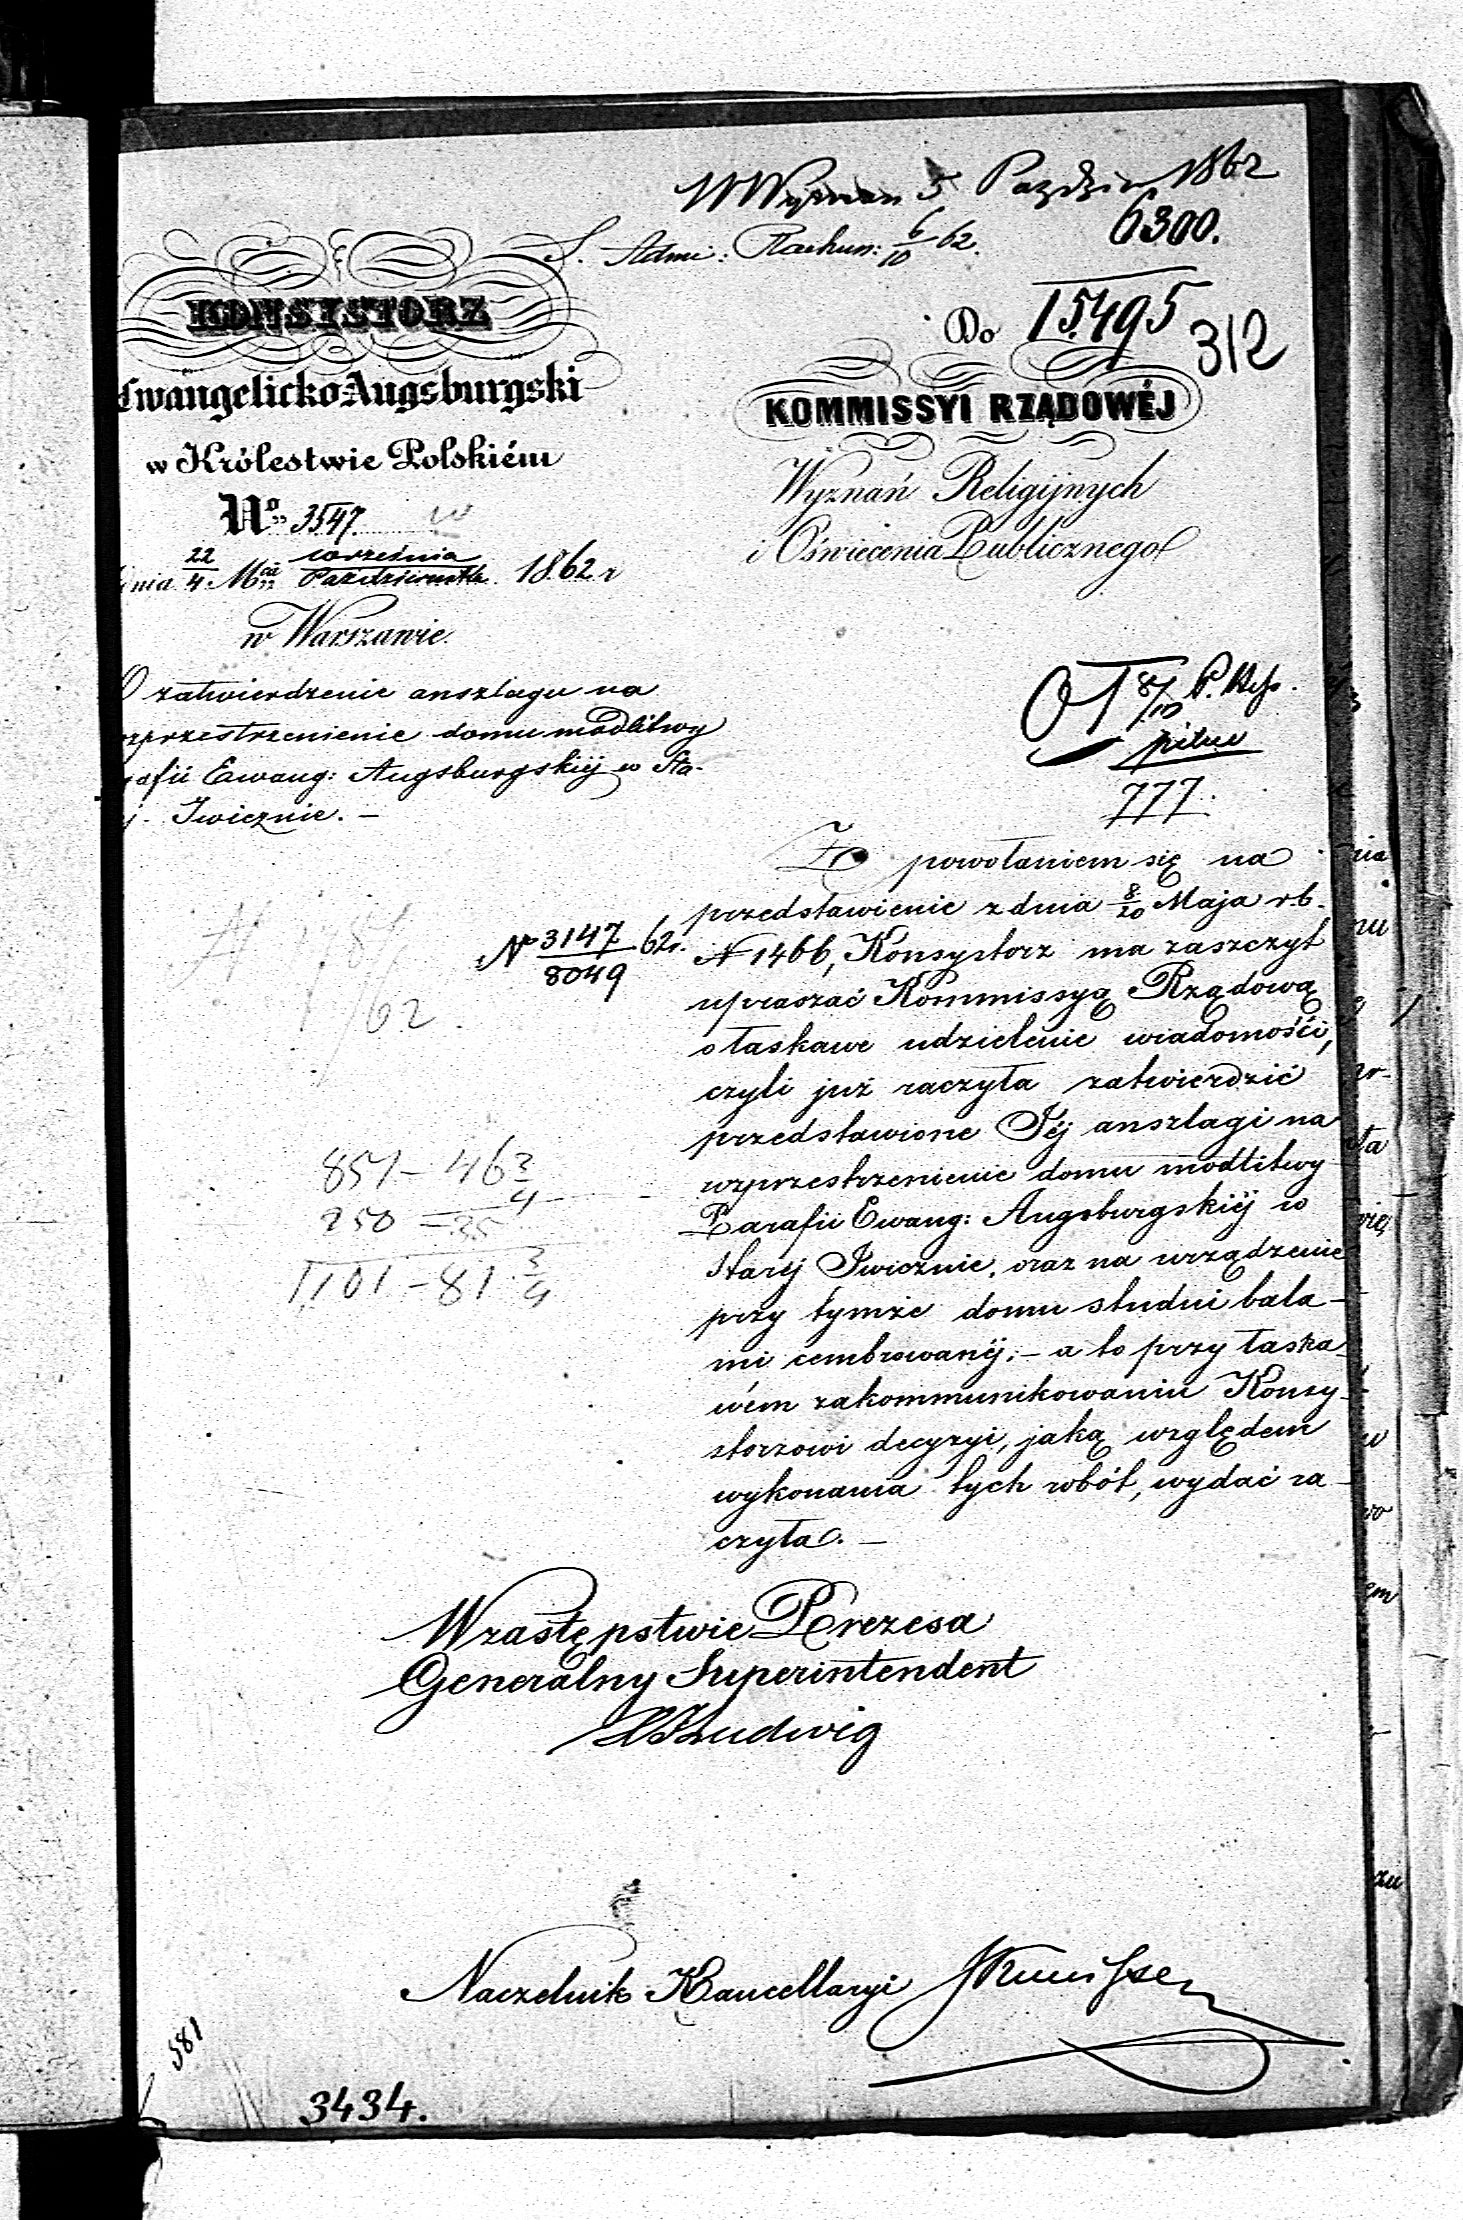 W Wyznan 5 Paździer 1862
6300.
S. Admi: Rachun: 6/10 62.
KONSYSTORZ
Ewangelicko-Augsburgski
w Królestwie Polskiém
No 3547.
dnia 22/4 Mca września/Października 1862 r
w Warszawie.
O zatwierdzenie anszlagu na
ozprzestrzenienie domu modlitwy
rafii Ewang: Augsburgskiéj w Sta-
éj Iwicznie. –
Do 15495
312
KOMMISSYI RZĄDOWÉJ
Wyznań Religijnych
i Oświecenia Publicznego
8/10
pilne
777.
N 3147/8049 62r.
62
851 – 46 3/4
250 – 35
1,101 – 81 3/4
Z powołaniem się na
przedstawienie z dnia 8/20 Maja r b.
N 1466, Konsystorz ma zaszczyt
upraszać Kommissyą Rządową
o łaskawe udzielenie wiadomości,
czyli już raczyła zatwierdzić
przedstawione Jéj anszlagi na
rozprzestrzenienie domu modlitwy
Parafii Ewang: Augsburgskiéj w
Staréj Iwicznie, oraz na urządzenie
przy tymże domu studni bala-
mi cembrowanéj; – a to przy łaska-
wém zakommunikowaniu Konsy-
storzowi decyzyi, jaką względem
wykonania tych robót, wydać ra-
czyła. –
W zastępstwie Prezesa
Generalny Superintendent
Ludwig
Naczelnik Kancellaryi
581
3434.